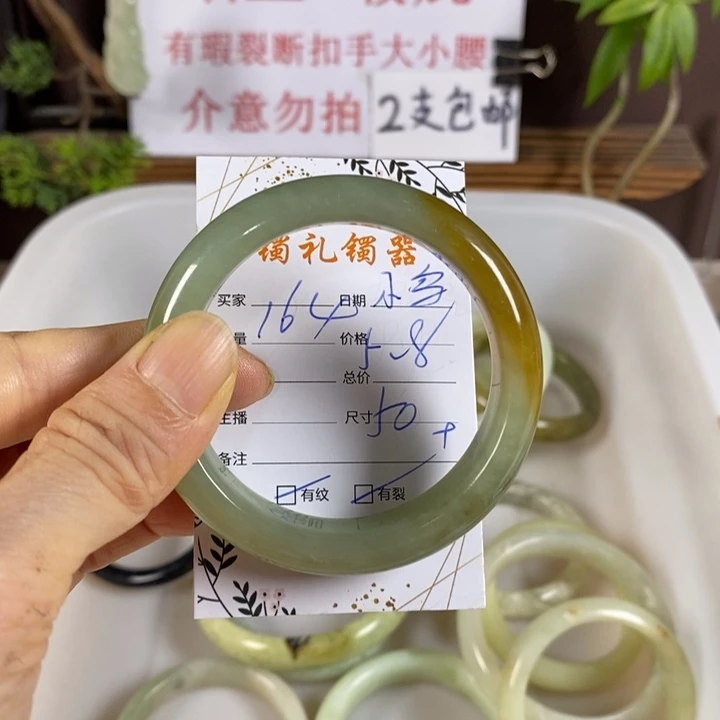 有瑕裂断扣手大小腰
介意勿拍
2支包邮
镯礼镯器
买家 164 日期
量 价格 5-8
总价
主播 尺寸 50+
备注
有纹 有裂